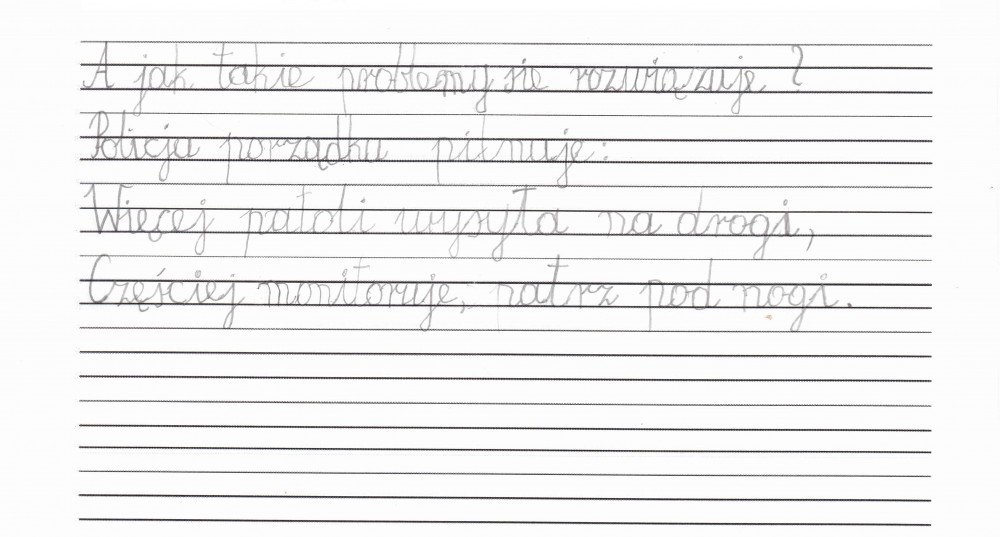 A jak takie problemy sie rozwiązuje ?
Policja porządku pilnuje:
Więcej patoli wysyła na drogi,
Częściej monitoruje, patrz pod nogi.